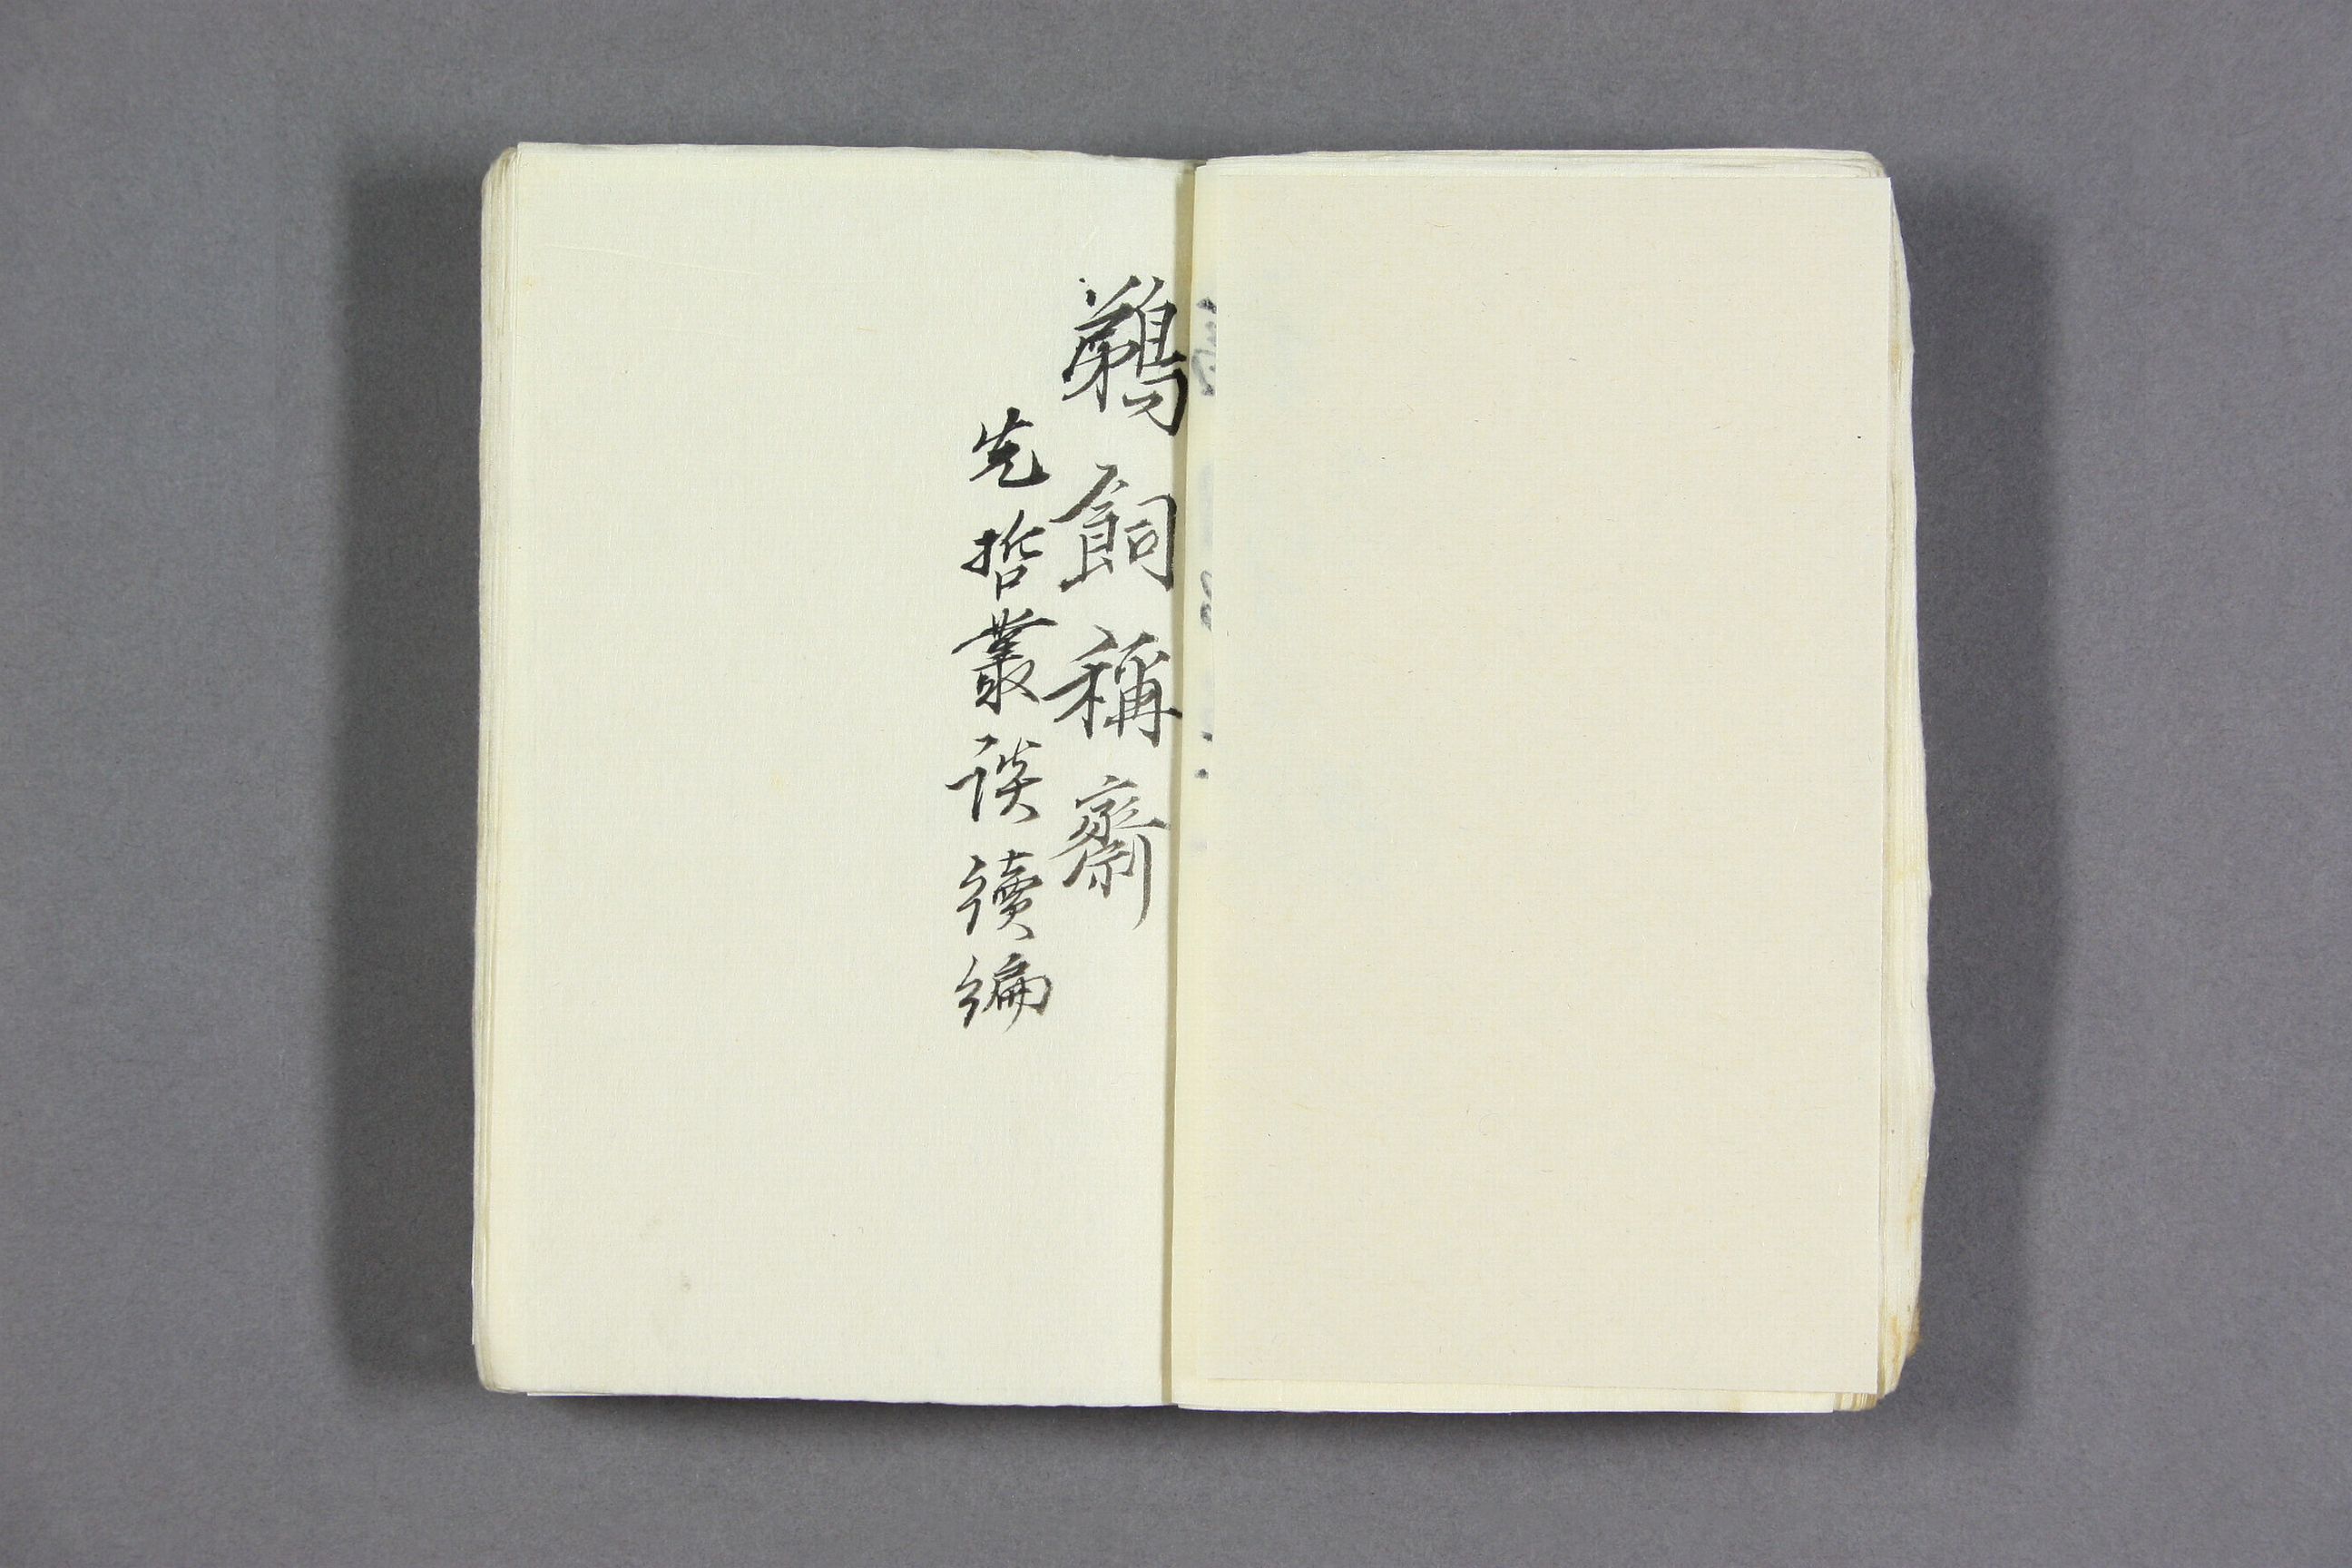 鵜飼稱齋
先哲叢談續編